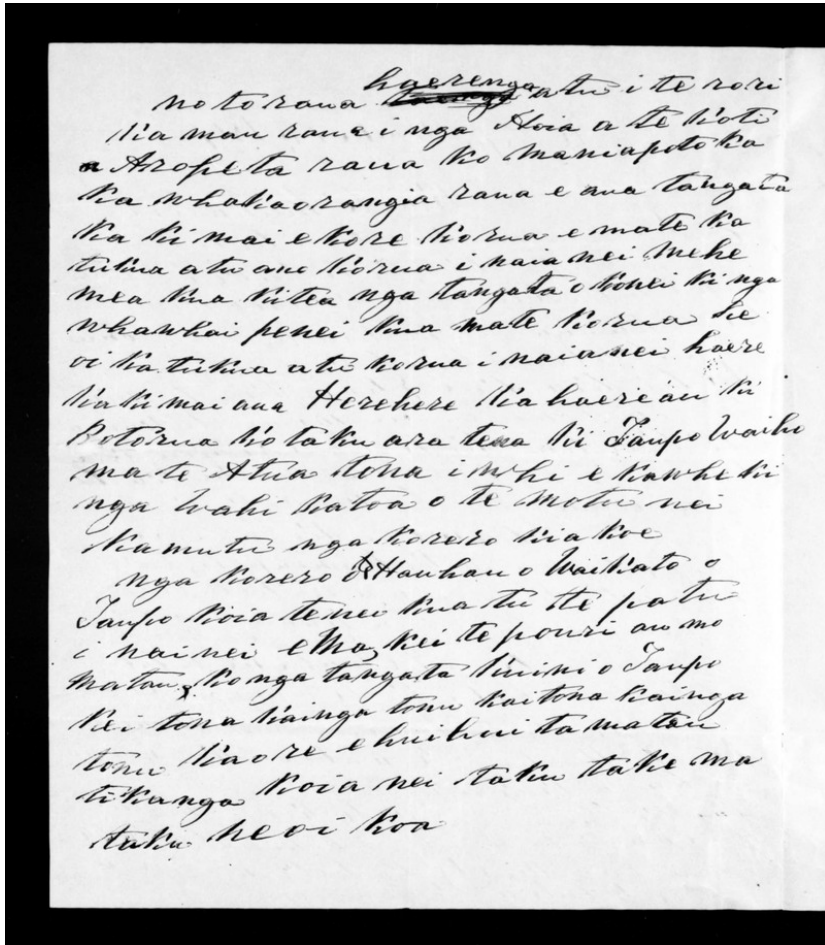 no to raua haerenga atu i te rori
kia mau raua i nga Hoia a te koti
a Aropeta raua ko maniapoto ka
ka whakaorangia raua e aua tangata
ka ki mai e kore korua e mate ka
tukua atu ano korua i naia nei mehe
mea kua kitea nga tangata o konei ki nga
whawhai penei kua mate korua he
oi ka tukua atu korua i naianei haere
ka ki mai ana Herehere kia haere au ki
Rotorua ko taku ara tena ki Taupo Waiho
ma te Atua tona i whi e kawhe ki
nga wahi katoa o te motu nei
ka mutu nga korero kia koe
nga korero o Hauhau o Waikato o
Taupo koia tenei kua tu te patu
i nainei e Ma kei te pouri au mo
matau ko nga tangata kuini o Taupo
kei tona kainga tonu kai tona kainga
tonu kaore e huihui ta matau
tikanga koia nei taku take ma
taku heoi koa